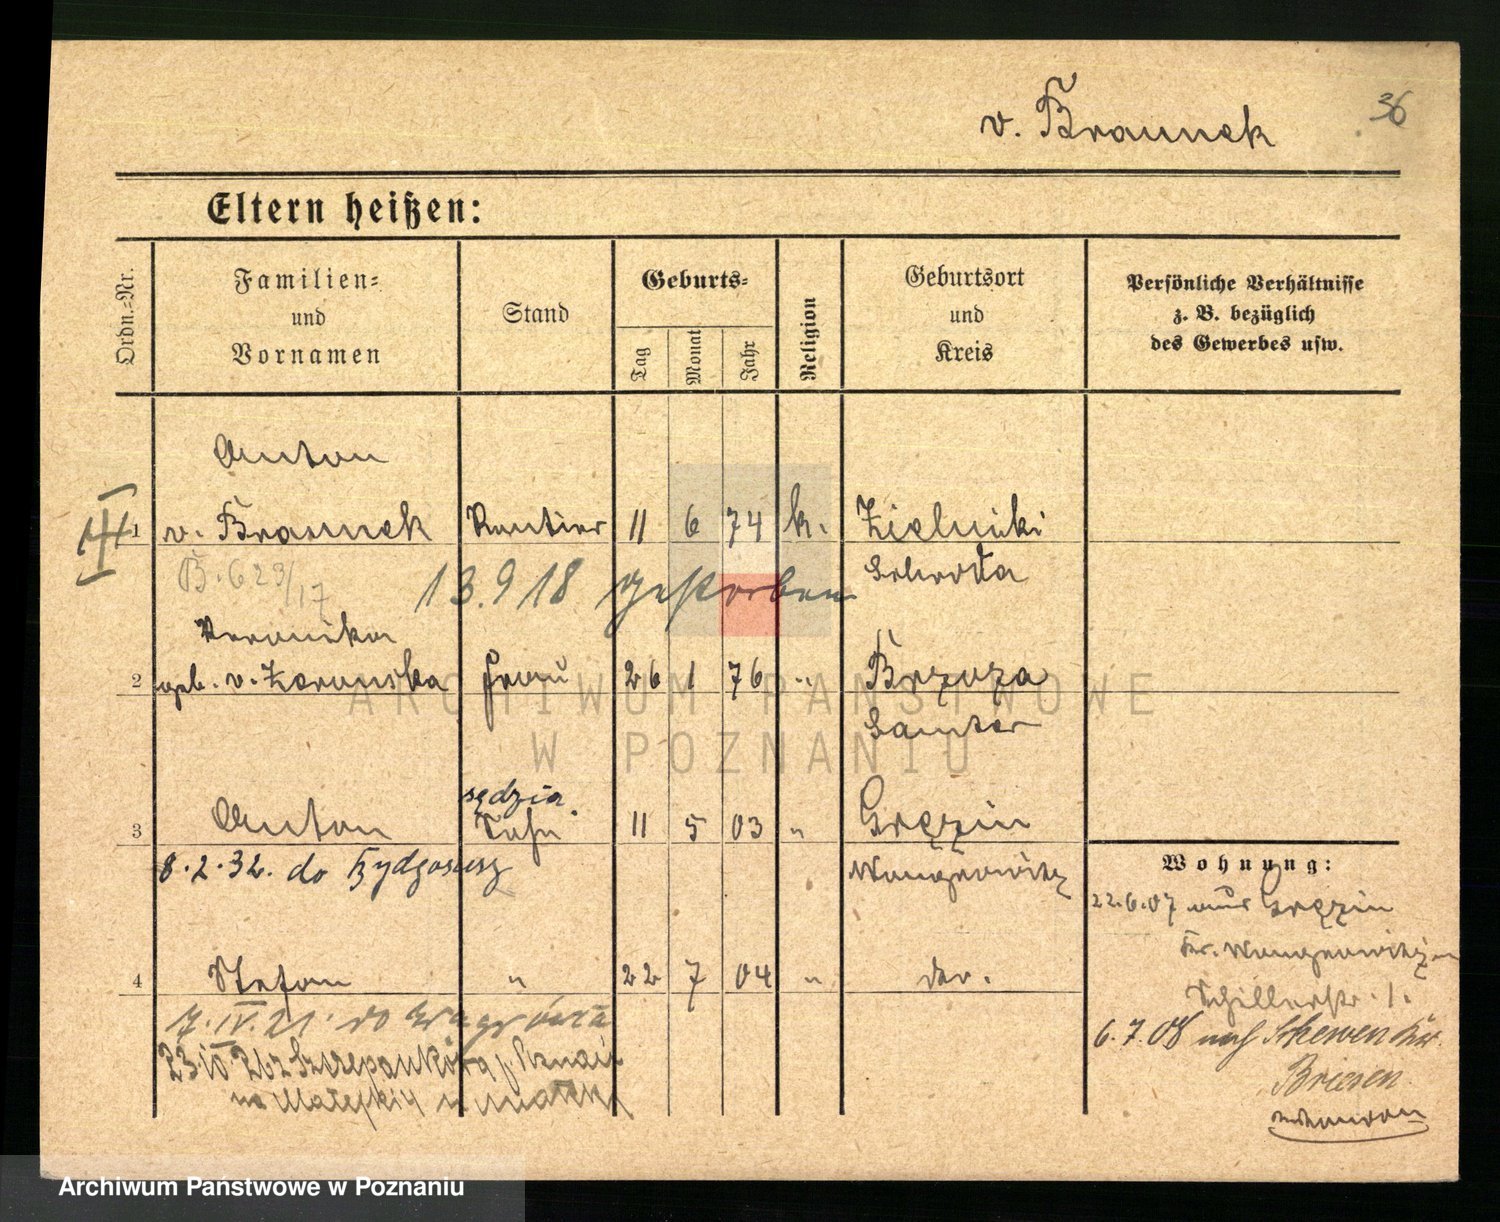 36
v. Braunek
Eltern heißen:
Ordn.-Nr.
Familien-
und
Vornamen
Stand
Geburts-
Tag
Monat
Jahr
Religion
Geburtsort
und
Kreis
Persönliche Verhältnisse
z. B. bezüglich
des Gewerbes usw.
Anton
III
1 v. Braunek Rentier 11 6 74 k. Zielniki
Schroda
B. 623/17 13.9 18 gestorben
Veronika
2 geb. v. Frau 26 1 76 " Brzoza
Samter
sędzia.
3 Anton Sohn 11 5 03 " Gręzin
8.2.32. do Bydgoszcz Wongrowitz
4 Stefan " 22 7 04 " do.
7.IV.21. do Wągrówca
Wohnung:
22.6.07 aus Gręzin
Kr. Wongrowitz
Schillerstr. 1.
6.7.08 nach Skewen Kr.
Briesen
ARCHIWUM PAŃSTWOWE
W POZNANIU
Archiwum Państwowe w Poznaniu